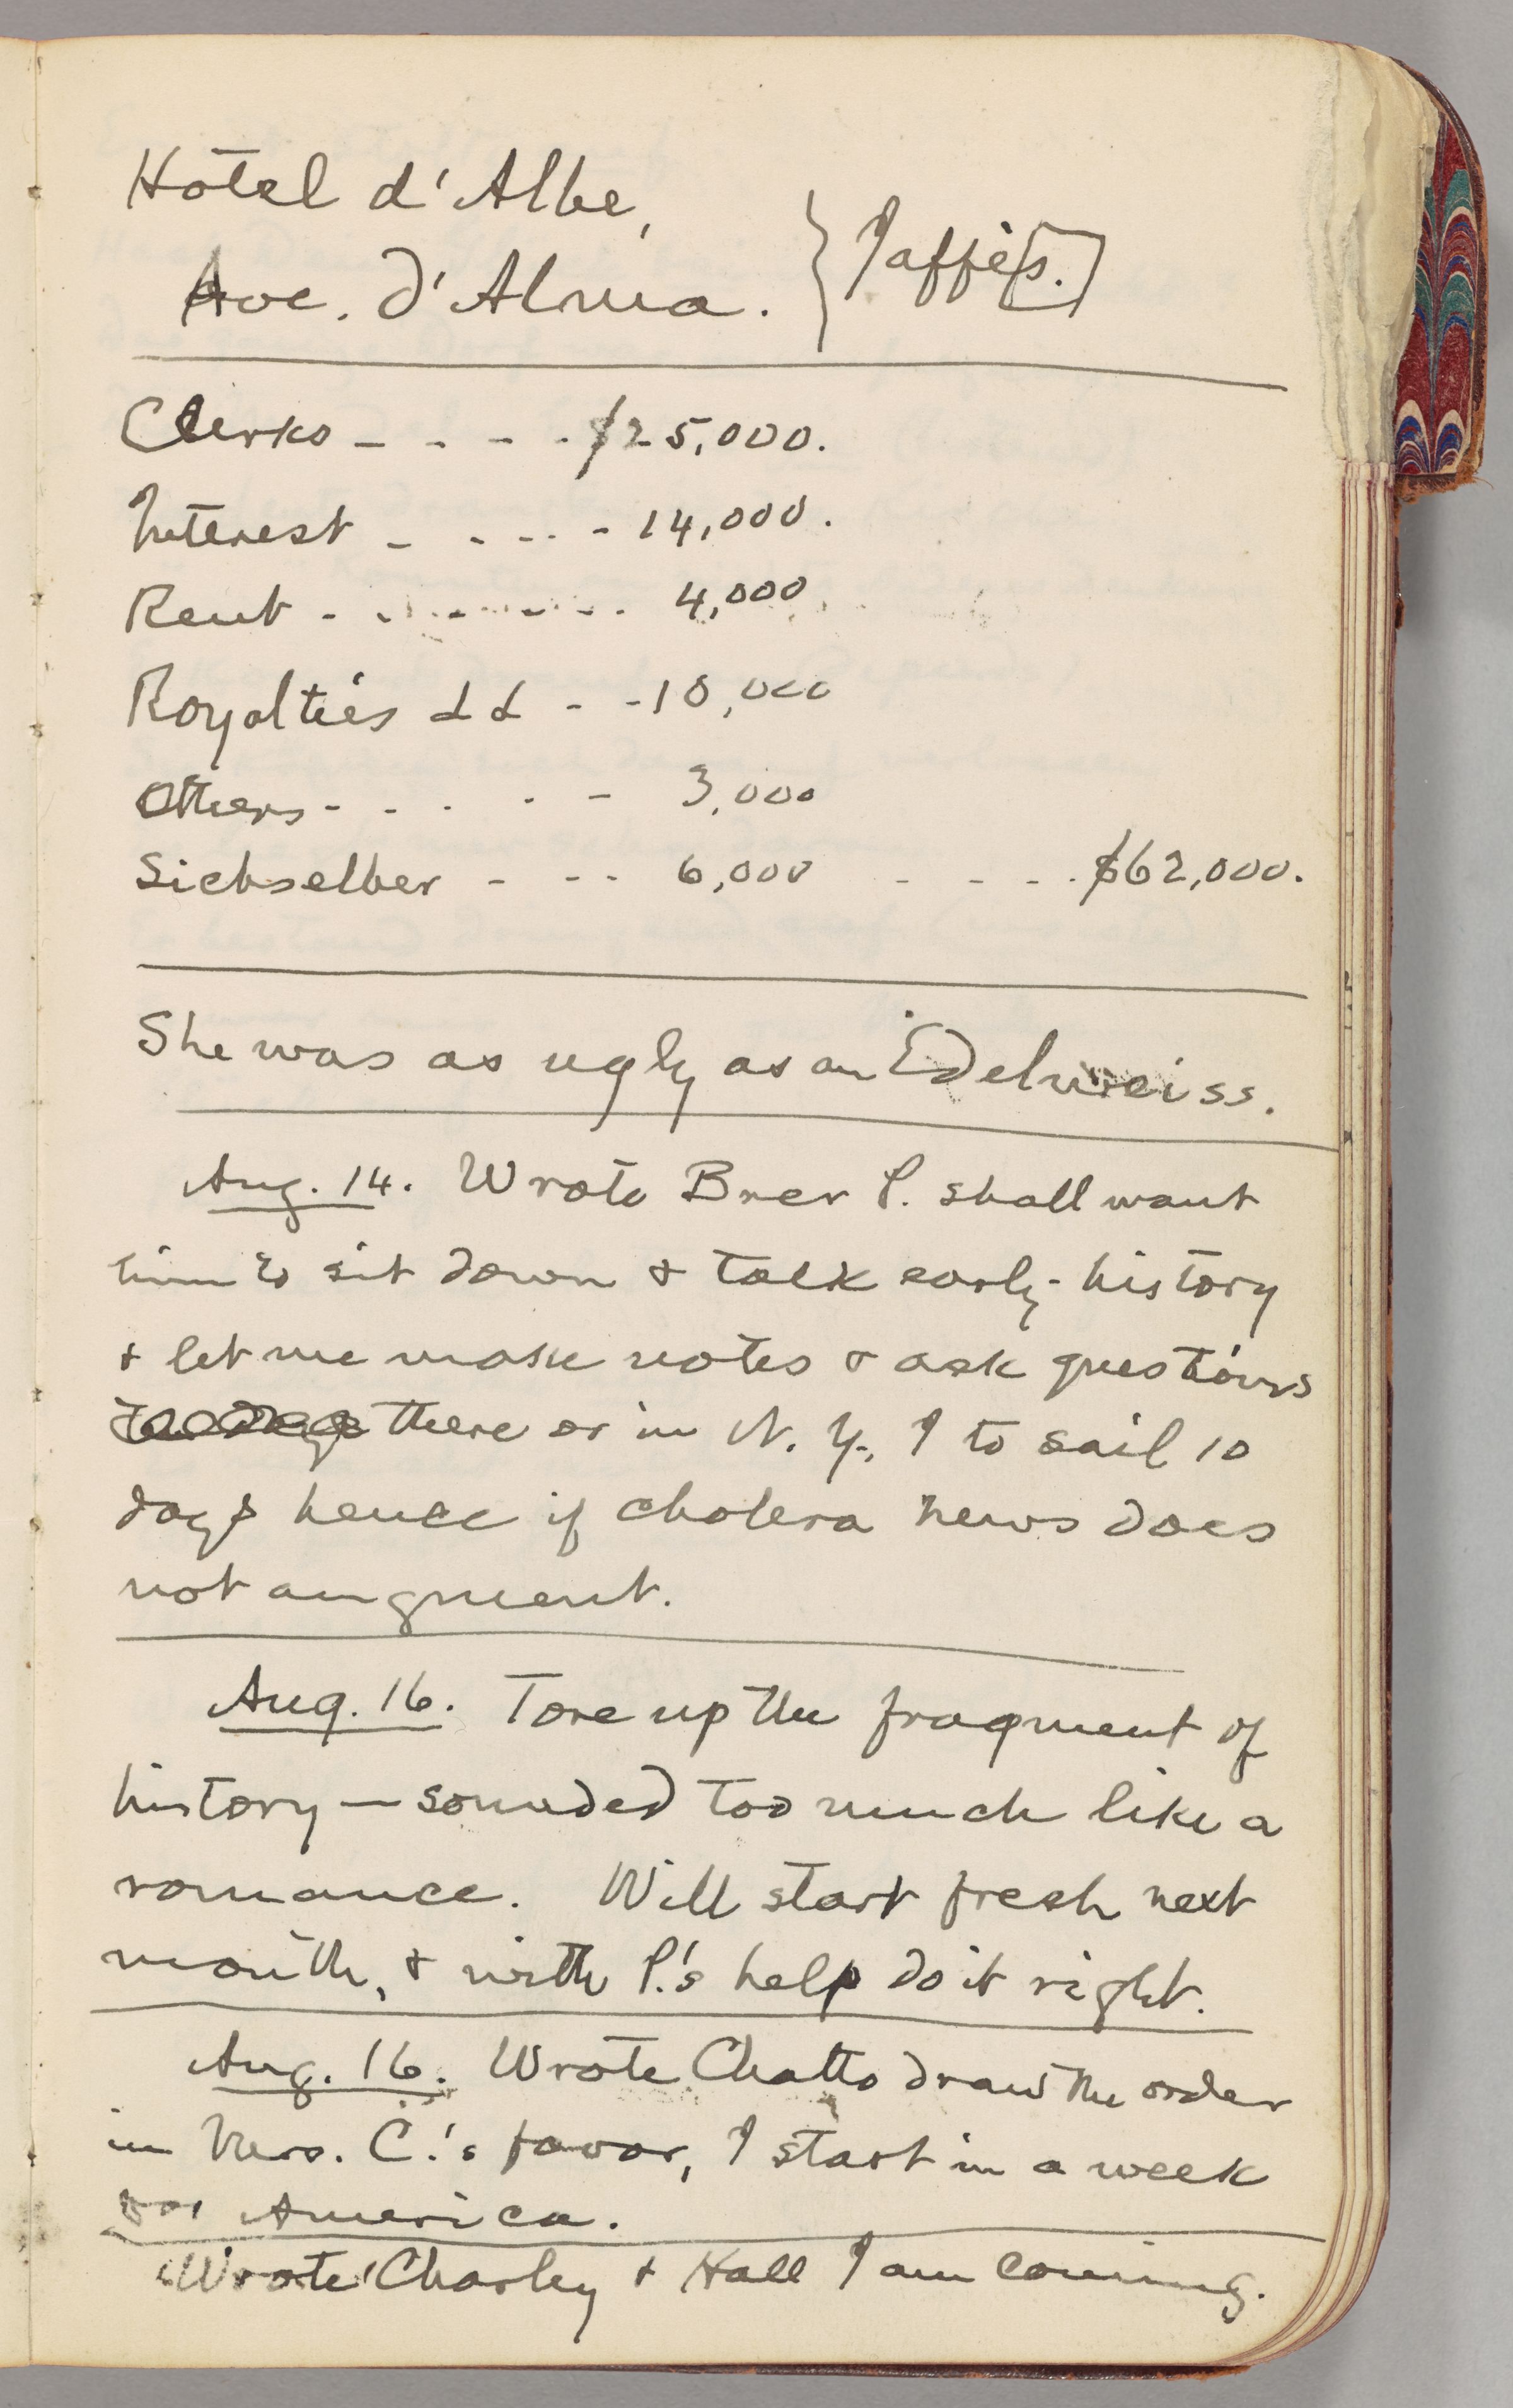 Hôtel d'Albe,
Ave. d'Alma. } Jaffés.
Clerks - - - - $25,000.
Interest - - - - - 14,000.
Rent - - - - - - - - 4,000
Royalties LL - - 10,000
Others - - - - - 3,000
Sichselber - - - 6,000 - - - - $62,000.
She was as ugly as an Edelweiss.
Aug. 14. Wrote Brer P. shall want
him to sit down & talk early-history
& let me make notes & ask questions
there or in N. Y., I to sail 10
days hence if cholera news does
not augment.
Aug. 16. Tore up the fragment of
history — sounded too much like a
romance. Will start fresh next
month, & with P.'s help do it right.
Aug. 16. Wrote Chatto draw the order
in Mrs. C.'s favor, I start in a week
for America.
Wrote Charley & Hall I am coming.